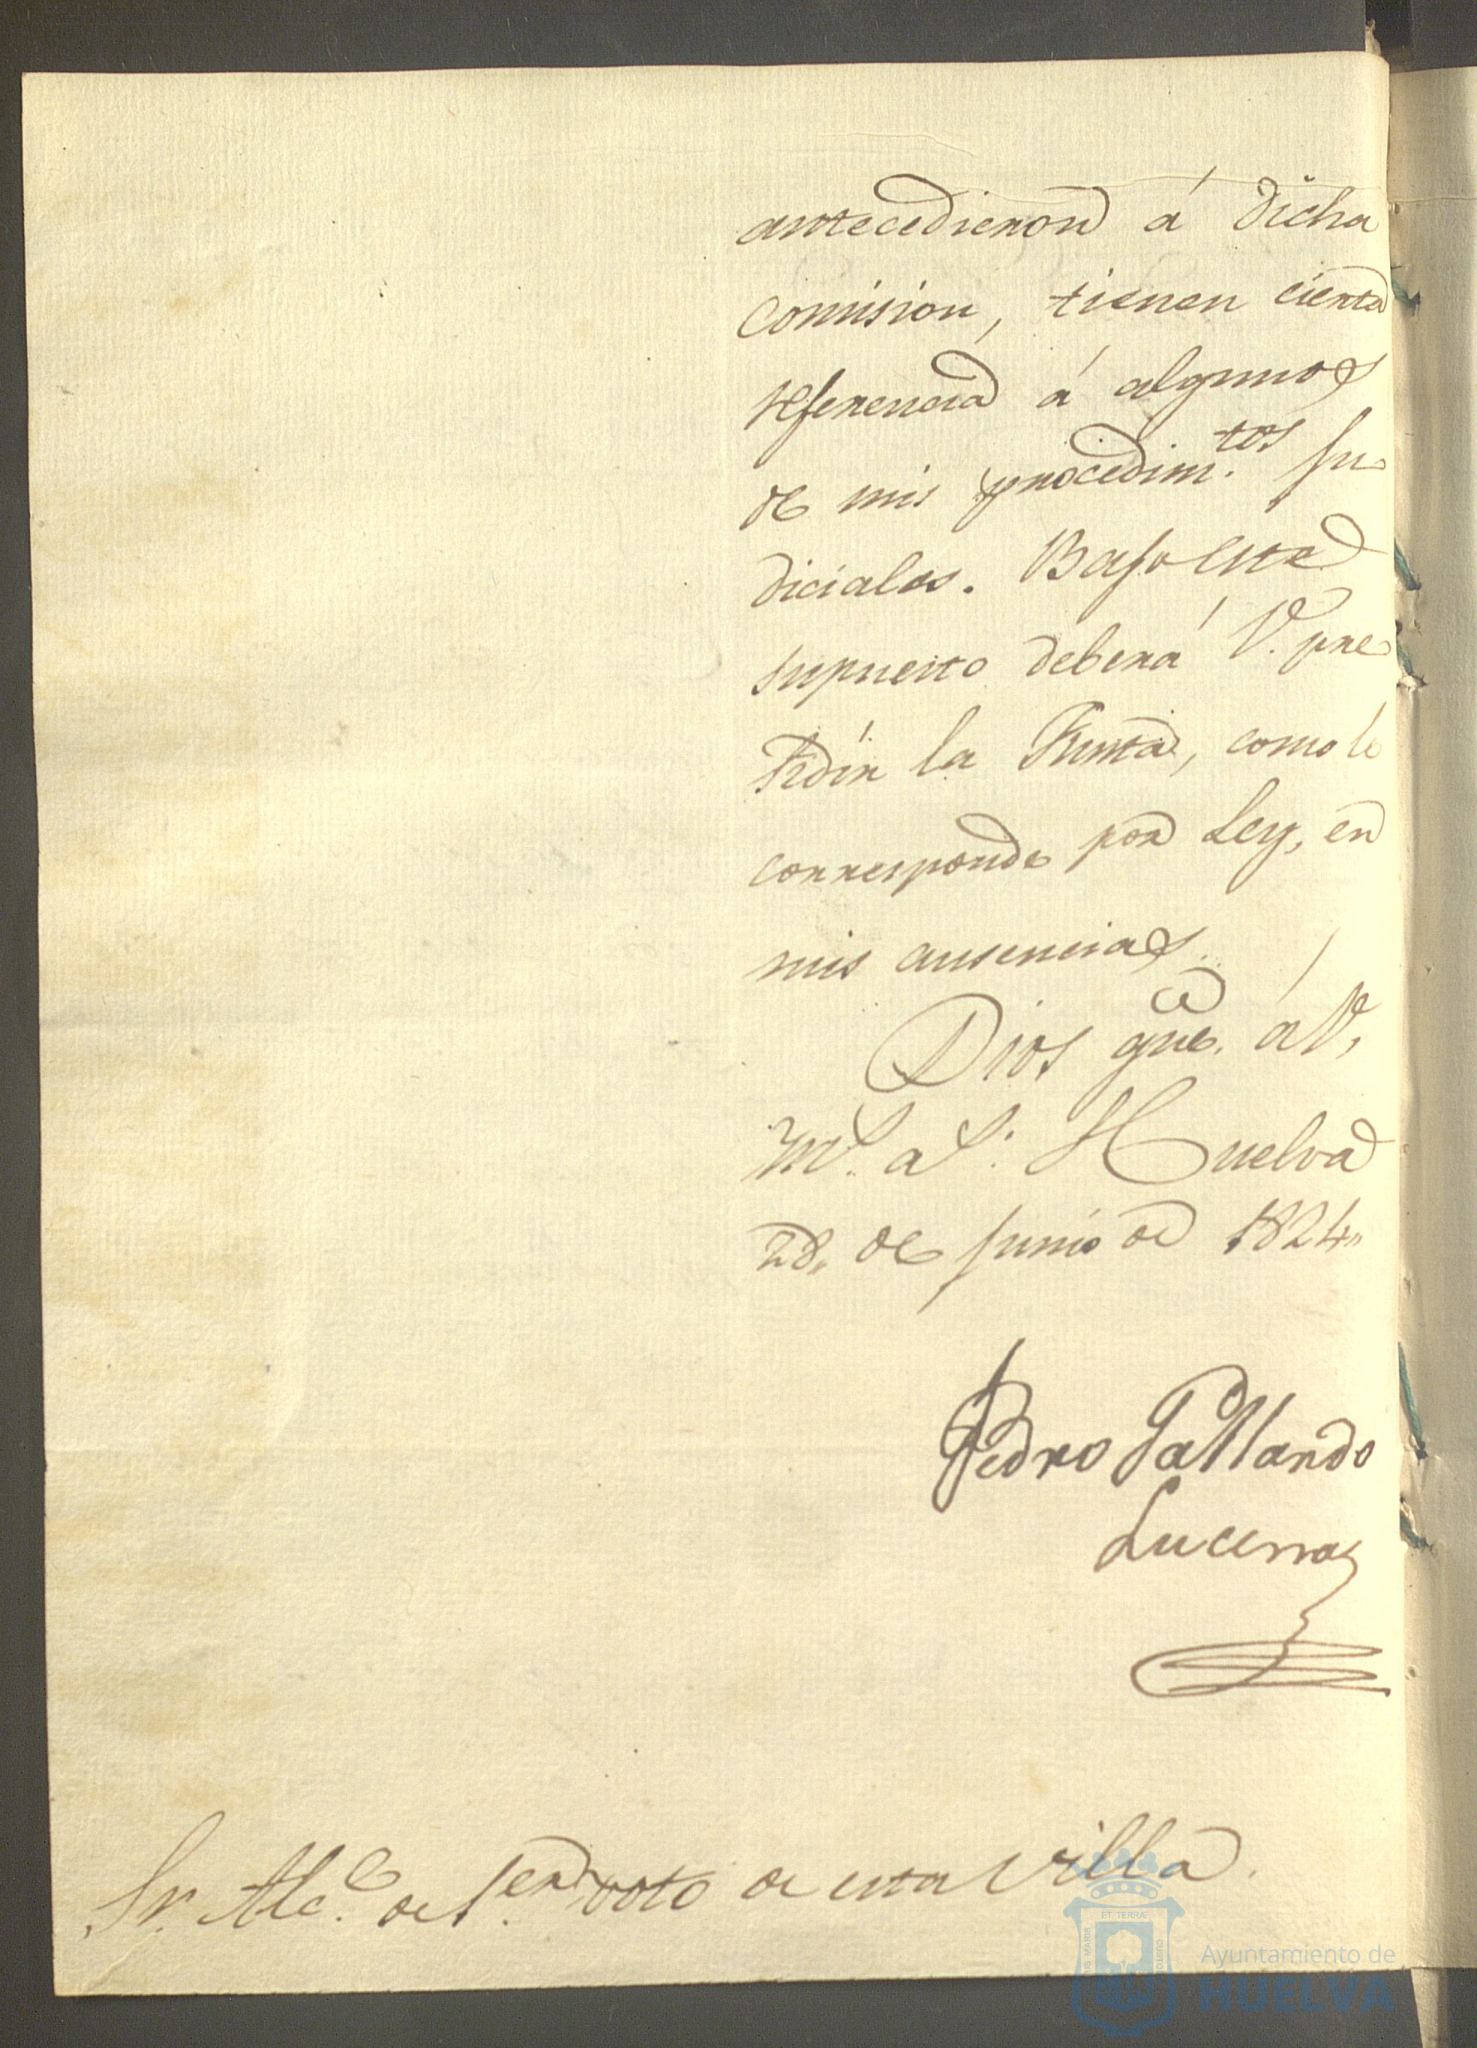 antecedieron á dicha
comision, tienen cierta
referencia á algunos
de mis procedim.tos Ju-
diciales. Bajo este
supuesto deberá V. pre-
sidir la Junta, como le
corresponde por Ley, en
mis ausencias.
Dios gue. á V.
ms. as. Huelva
28, de Junio de 1824,,
Pedro Gallardo
Lucena
Sr. Alce. de 1er. voto de esta Villa.
ET TERRÆ
Ayuntamiento de
HUELVA